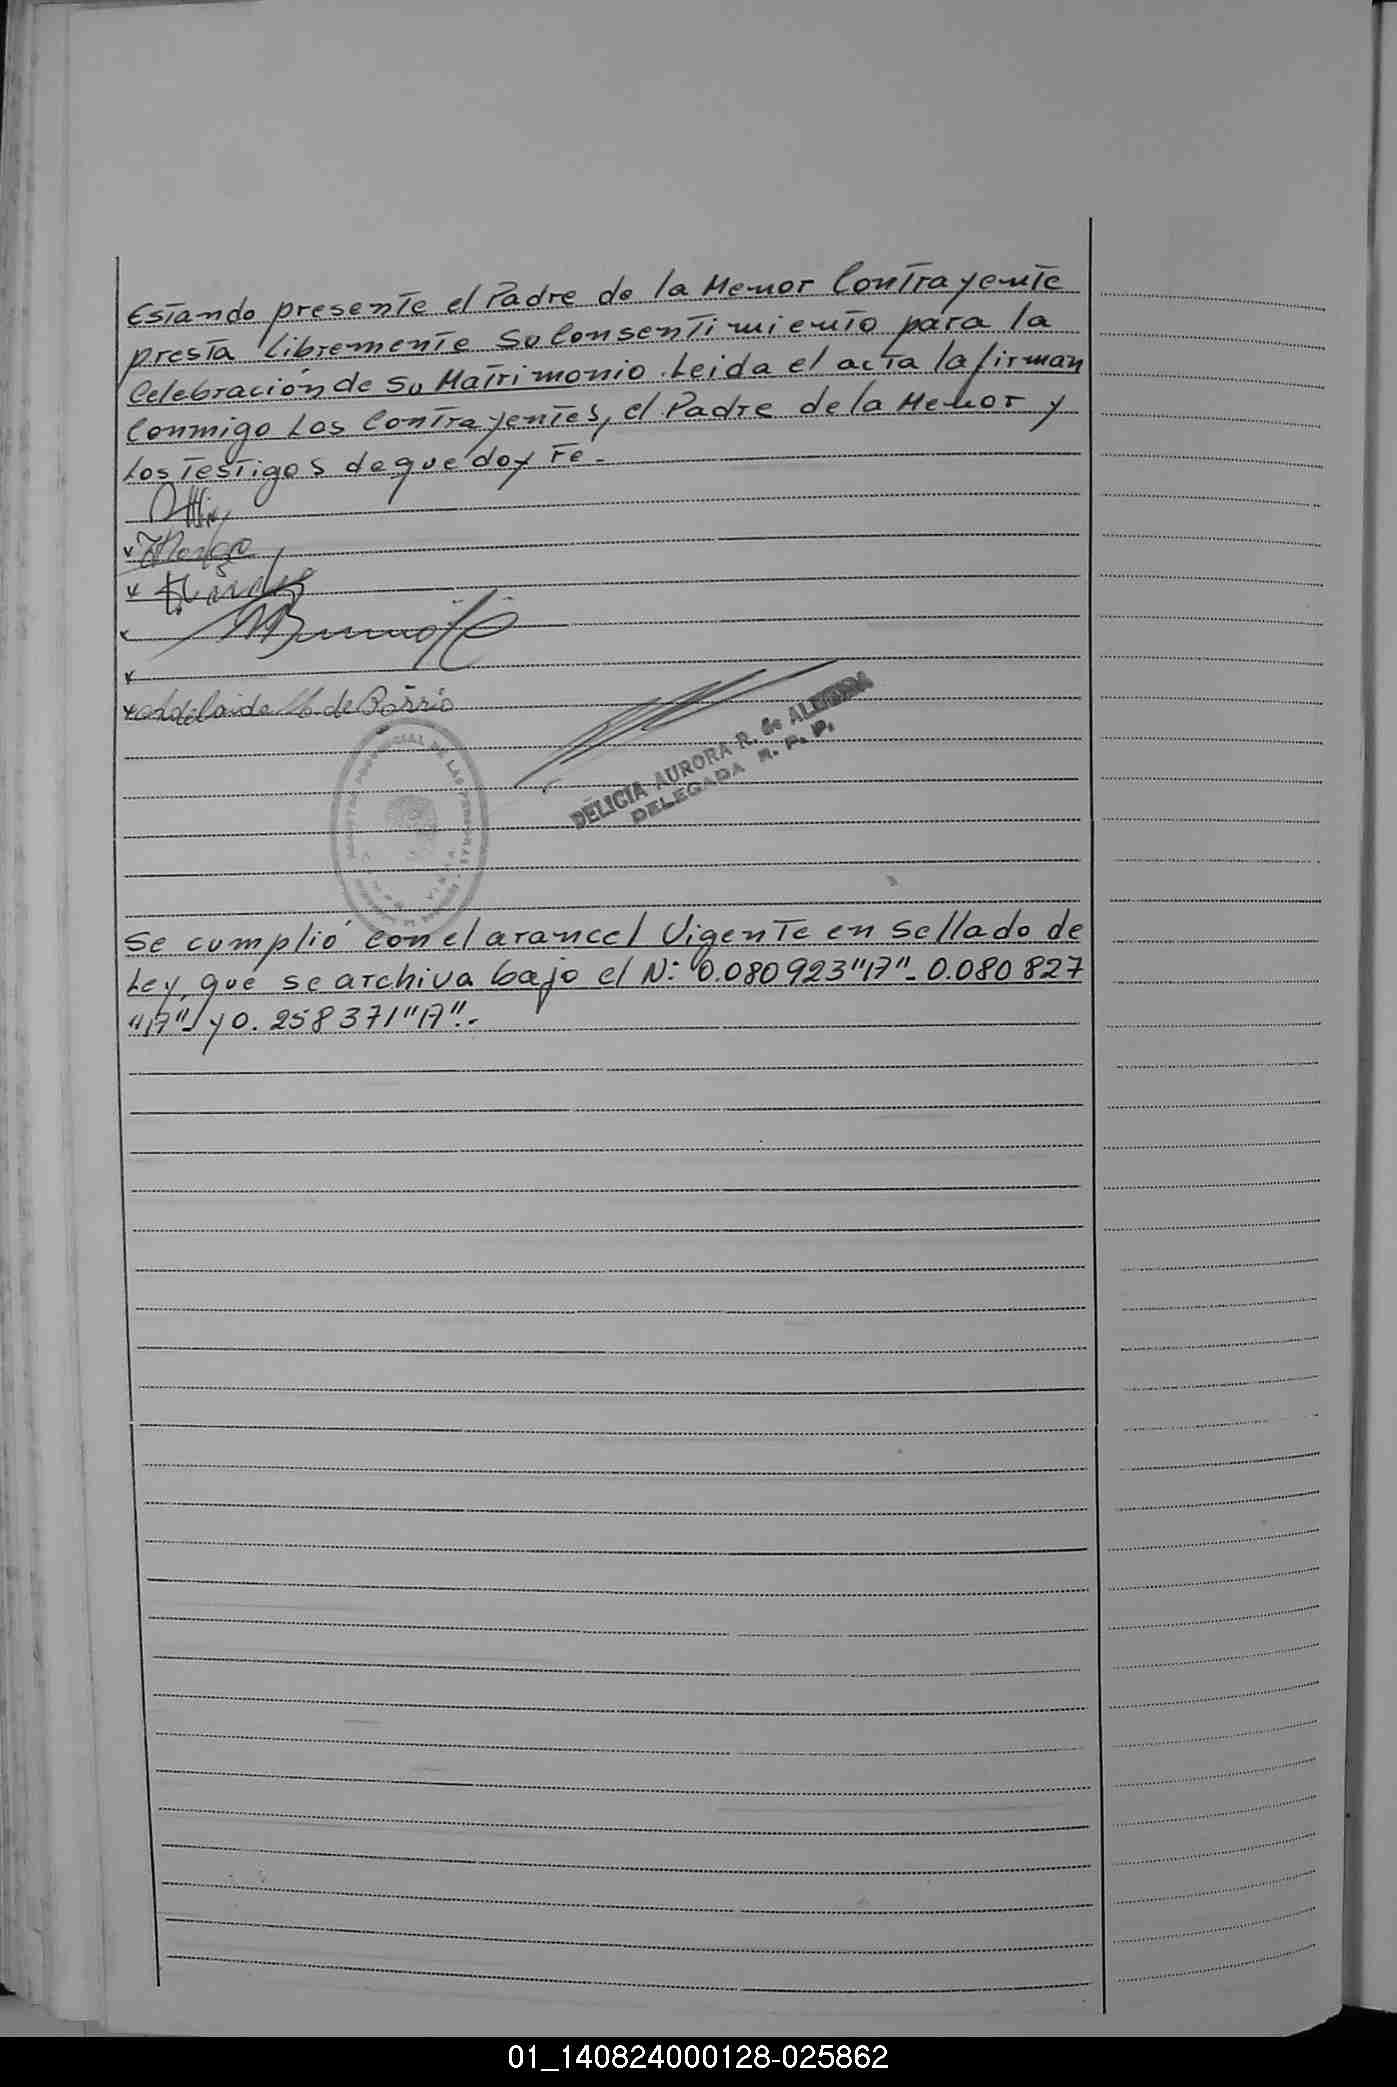 Estando presente el Padre de la Menor Contrayente
presta libremente su Consentimiento para la
Celebración de su Matrimonio. Leida el acta la firman
Conmigo Los Contrayentes, el Padre de la Menor y
Los Testigos de que doy Fe.-
Adelaida M. de Barrio
DELICIA AURORA R. de ALMEIDA
DELEGADA R. P. P.
Se cumplió con el arancel Vigente en Sellado de
Ley, que se archiva bajo el N: 0.080923"17"- 0.080827
"17"- y 0. 258371"17".-
01_140824000128-025862